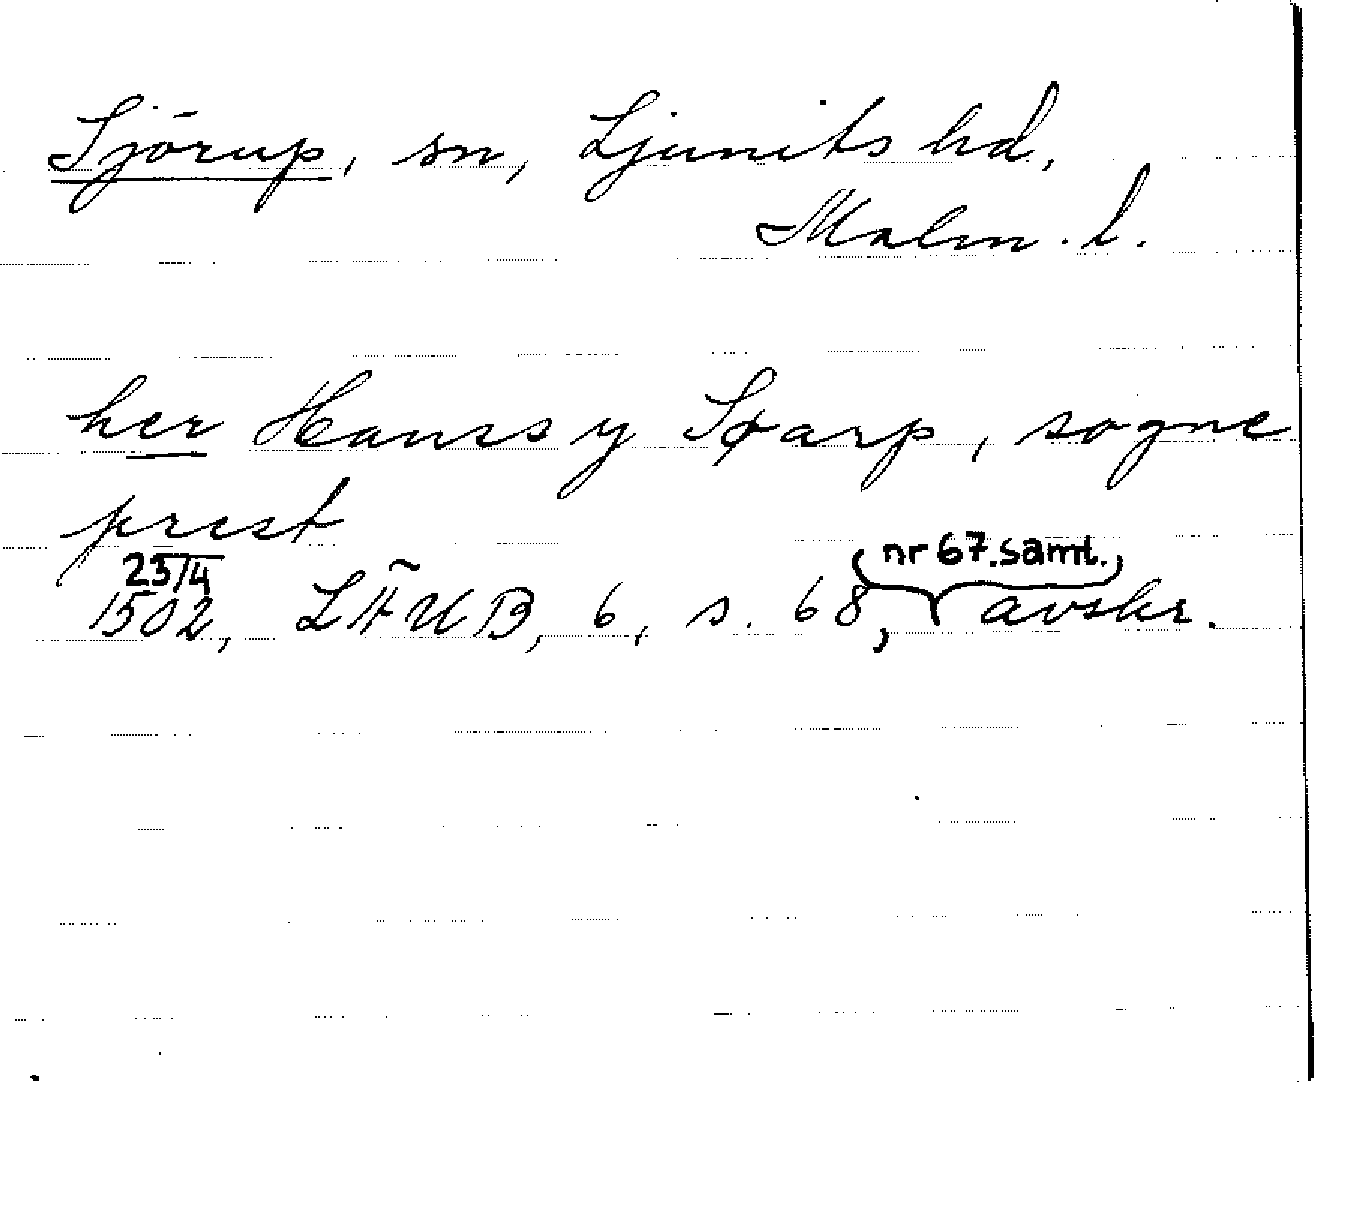 Sjörup, sn, Ljunits hd,
Malm. l.
her Hanss y Søarp, sogne
prest
23/4 nr 67. samt.
1502, LÄUB, 6, s. 68, avskr.